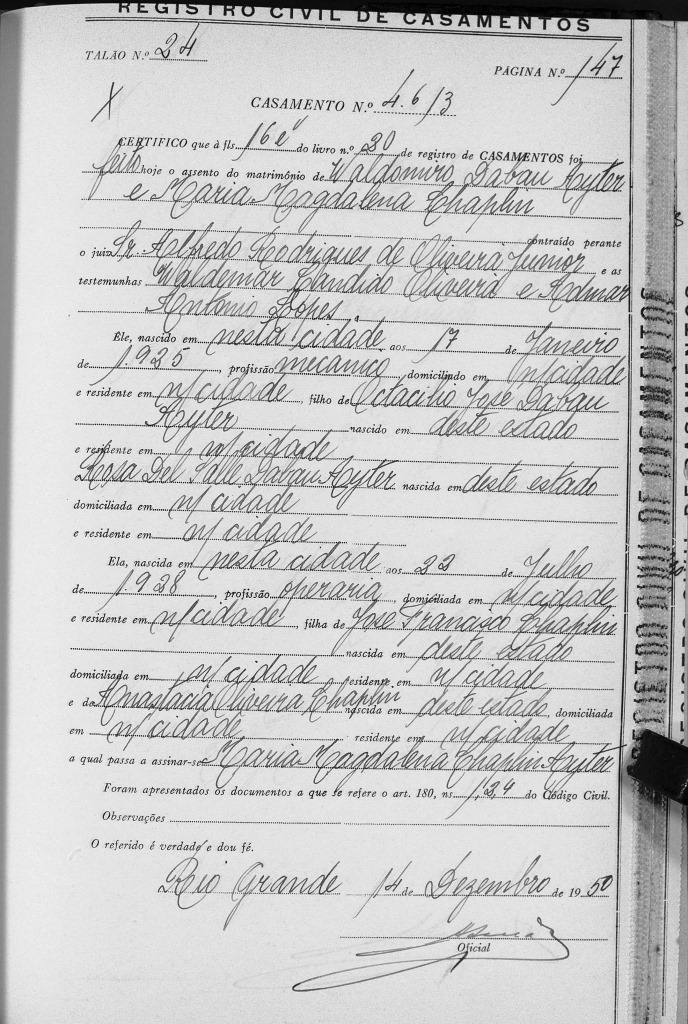 REGISTRO CIVIL DE CASAMENTOS
TALÃO N.º 24
PÁGINA N.º 147
X
CASAMENTO N.º 4.613
CERTIFICO que à fls. 16 do livro n.º 20 de registro de CASAMENTOS foi
feito hoje o assento do matrimônio de Waldomiro Dabau Ayter
e Maria Magdalena Chaplin
contraído perante
o juiz Sr. Alfredo Rodrigues de Oliveira Junior e as
testemunhas Waldemar Candido Oliveira e Admar
Antonio Lopes
Ele, nascido em nesta cidade aos 17 de Janeiro
de 1.925, profissão mecanico domiciliado em n/cidade
e residente em n/cidade, filho de Otacilio José Dabau
Ayter nascido em deste estado
e residente em n/cidade
Rosa Del Salle Dabau Ayter nascida em deste estado
domiciliada em n/cidade
e residente em n/cidade
Ela, nascida em nesta cidade aos 22 de Julho
de 1.928, profissão operaria, domiciliada em n/cidade
e residente em n/cidade, filha de José Francisco Chaplin
nascida em deste estado
domiciliada em n/cidade residente em n/cidade
e da Anastacia Oliveira Chaplin nascida em deste estado, domiciliada
em n/cidade, residente em n/cidade
a qual passa a assinar-se Maria Magdalena Chaplin Ayter
Foram apresentados os documentos a que se refere o art. 180, ns. 1,2,4 do Código Civil.
Observações
O referido é verdade e dou fé.
Rio Grande 14 de Dezembro de 1950
Oficial
REGISTRO CIVIL DE CASAMENTOS